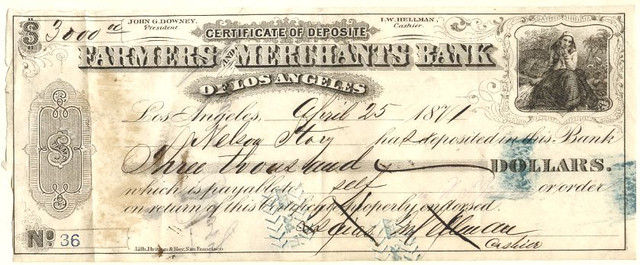 $ 3000 00
JOHN G. DOWNEY, President.
I.W. HELLMAN, Cashier.
CERTIFICATE OF DEPOSITE
FARMERS AND MERCHANTS BANK
OF LOS ANGELES
Los Angeles, April 25 1871
Nelson Story has deposited in this Bank
Three thousand DOLLARS.
which is payable to self or order
on return of this Certificate properly endorsed.
Hellman
Cashier
No. 36